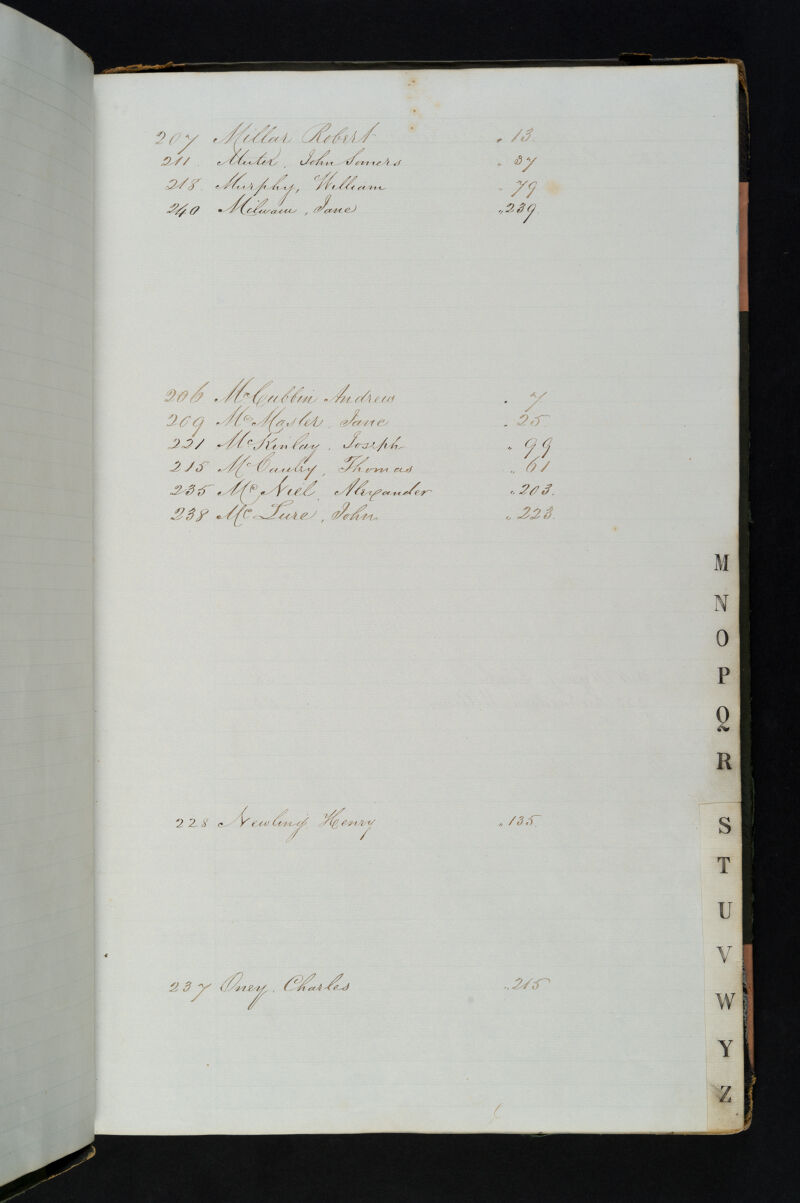 207 Millar Robert " 13.
211. Muter, John Somers " 37
218. Murphy, William " 79
240 Milwain, Jane " 239.
206 McCubbin Andrew " 7
209 McMaster, Jane " 25
221 McKinlay, Joseph " 99
215 McCaulry, Thomas " 61
235 McNiel, Alexander " 203.
238 McLure, John " 223.
228 Newling, Henry " 135.
237 Oney, Charles " 215
M
N
O
P
Q
R
S
T
U
V
W
Y
Z